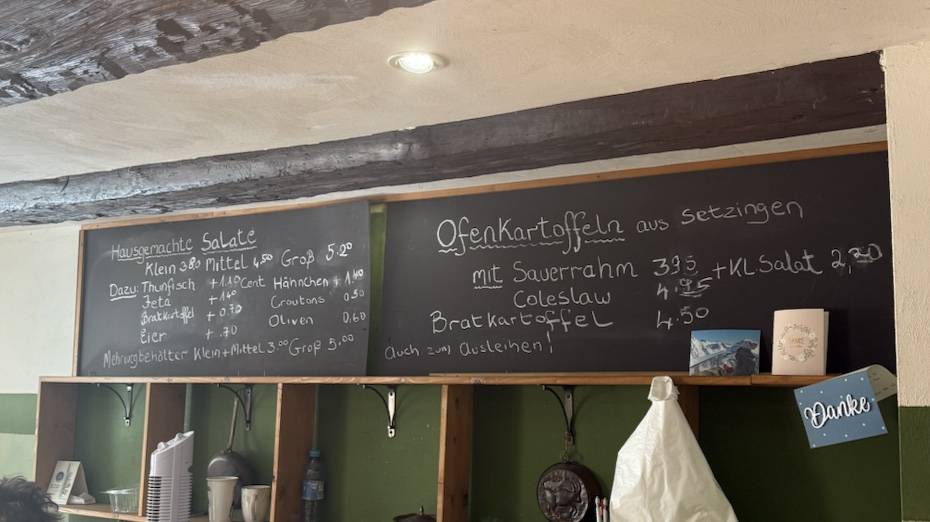 Hausgemachte Salate
Klein 3.80 Mittel 4,50 Groß 5.20
Dazu: Thunfisch +1.10 Cent Hännchen + 1.40
Feta + 1.40 Croutons 0.50
Bratkartoffel + 0.70 Oliven 0.60
Eier + .70
Klein+Mittel 3.00 Groß 5.00
Auch zum Ausleihen!
Ofenkartoffeln aus Setzingen
mit Sauerrahm 3.95 + KL Salat
Coleslaw 4.95
Bratkartoffel 4.50
Danke